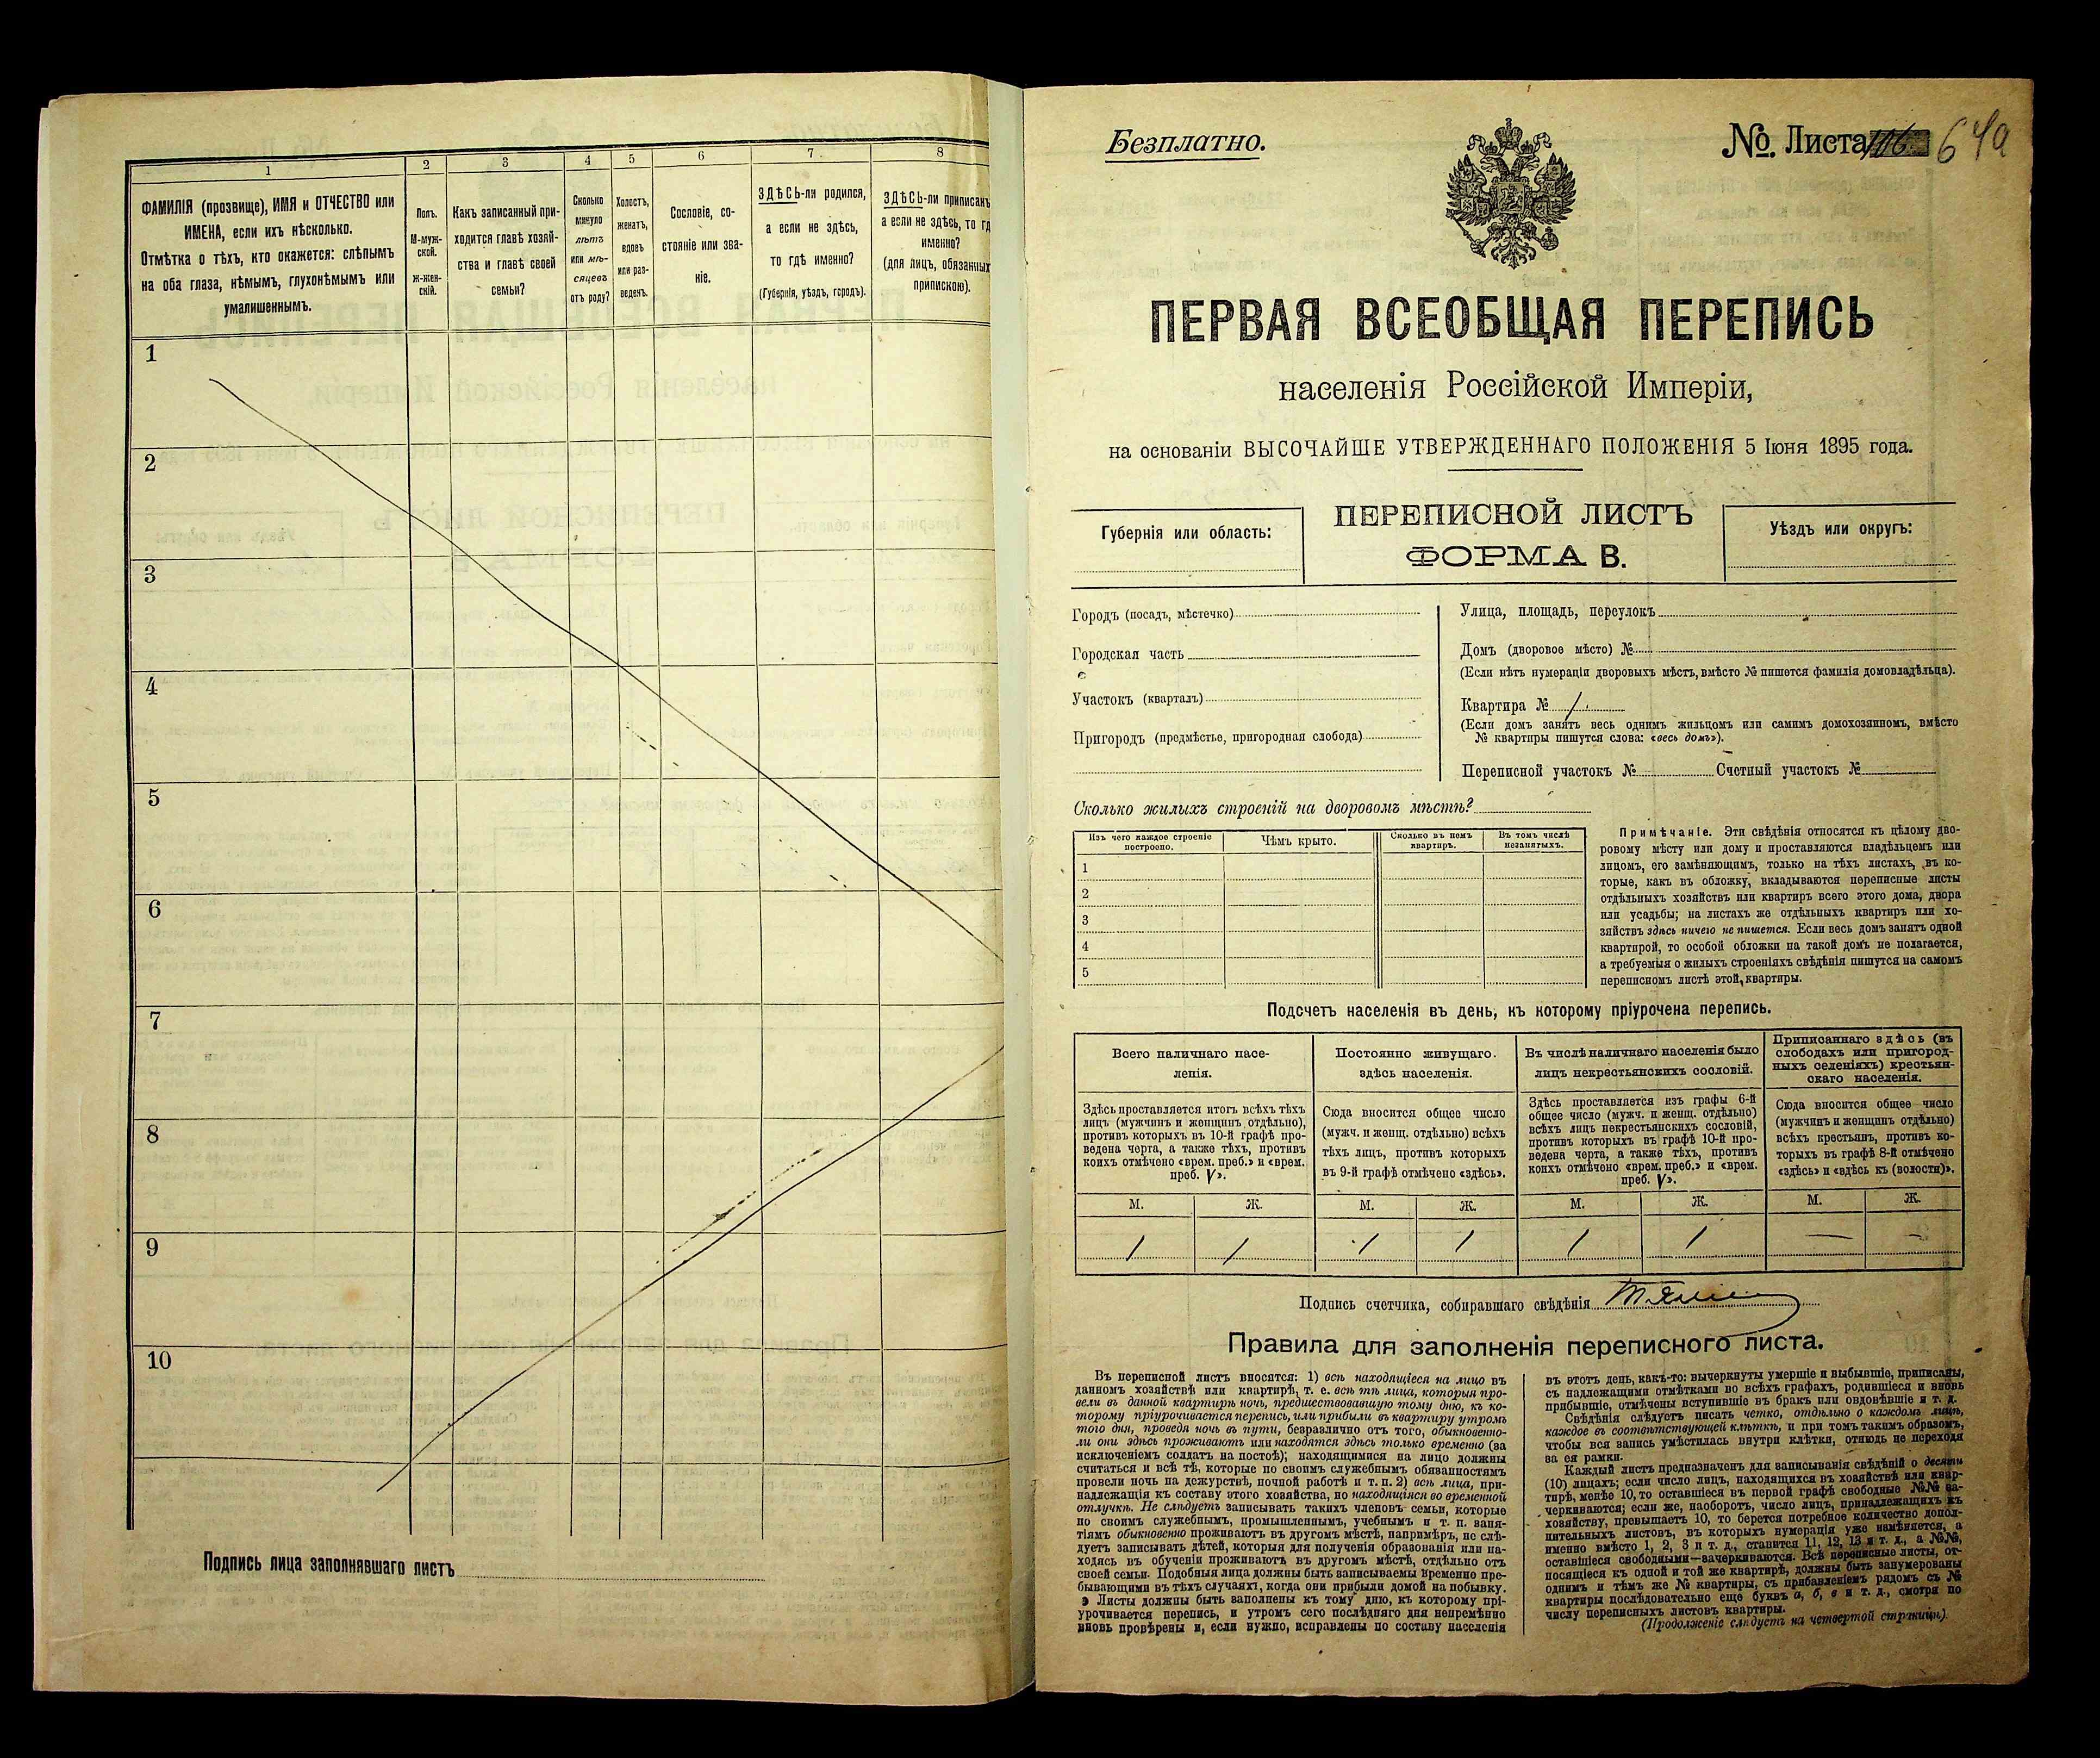 1
2
3
4
5
6
7
8
ФАМИЛІЯ (прозвище), ИМЯ и ОТЧЕСТВО или
ИМЕНА, если ихъ нѣсколько.
Отмѣтка о тѣхъ, кто окажется: слѣпымъ
на оба глаза, нѣмымъ, глухонѣмымъ или
умалишеннымъ.
Полъ.
М-муж-
ской.
Ж-жен-
скій.
Какъ записанный при-
ходится главѣ хозяй-
ства и главѣ своей
семьи?
Сколько
минуло
лѣтъ
или мѣ-
сяцевъ
отъ роду?
Холостъ,
женатъ,
вдовъ
или раз-
веденъ.
Сословіе, со-
стояніе или зва-
ніе.
ЗДѢСЬ-ли родился,
а если не здѣсь,
то гдѣ именно?
(Губернія, уѣздъ, городъ).
ЗДѢСЬ-ли приписанъ
а если не здѣсь, то гд
именно?
(для лицъ, обязанных
припискою).
1
2
3
4
5
6
7
8
9
10
Подпись лица заполнявшаго листъ
Безплатно.
№. Листа 106 64а
ПЕРВАЯ ВСЕОБЩАЯ ПЕРЕПИСЬ
населенія Россійской Имперіи,
на основаніи ВЫСОЧАЙШЕ УТВЕРЖДЕННАГО ПОЛОЖЕНІЯ 5 Іюня 1895 года.
Губернія или область:
ПЕРЕПИСНОЙ ЛИСТЪ
ФОРМА В.
Уѣздъ или округъ:
Городъ (посадъ, мѣстечко)
Городская часть
Участокъ (кварталъ)
Пригородъ (предмѣстье, пригородная слобода)
Улица, площадь, переулокъ
Домъ (дворовое мѣсто) №
(Если нѣтъ нумераціи дворовыхъ мѣстъ, вмѣсто № пишется фамилія домовладѣльца).
Квартира № 1
(Если домъ занятъ весь однимъ жильцомъ или самимъ домохозяиномъ, вмѣсто
№ квартиры пишутся слова: «весь домъ»).
Переписной участокъ № Счетный участокъ №
Сколько жилыхъ строеній на дворовомъ мѣстѣ?
Изъ чего каждое строеніе
построено.
Чѣмъ крыто.
Сколько въ немъ
квартиръ.
Въ томъ числѣ
незанятыхъ.
1
2
3
4
5
Примѣчаніе. Эти свѣдѣнія относятся къ цѣлому дво-
ровому мѣсту или дому и проставляются владѣльцемъ или
лицомъ, его замѣняющимъ, только на тѣхъ листахъ, въ ко-
торые, какъ въ обложку, вкладываются переписные листы
отдѣльныхъ хозяйствъ или квартиръ всего этого дома, двора
или усадьбы; на листахъ же отдѣльныхъ квартиръ или хо-
зяйствъ здѣсь ничего не пишется. Если весь домъ занятъ одной
квартирой, то особой обложки на такой домъ не полагается,
а требуемыя о жилыхъ строеніяхъ свѣдѣнія пишутся на самомъ
переписномъ листѣ этой квартиры.
Подсчетъ населенія въ день, къ которому пріурочена перепись.
Всего наличнаго насе-
ленія.
Постоянно живущаго
здѣсь населенія.
Въ числѣ наличнаго населенія было
лицъ некрестьянскихъ сословій.
Приписаннаго здѣсь (въ
слободахъ или пригород-
ныхъ селеніяхъ) крестьян-
скаго населенія.
Здѣсь проставляется итогъ всѣхъ тѣхъ
лицъ (мужчинъ и женщинъ отдѣльно),
противъ которыхъ въ 10-й графѣ про-
ведена черта, а также тѣхъ, противъ
коихъ отмѣчено «врем. преб.» и «врем.
преб. V».
Сюда вносится общее число
(мужч. и женщ. отдѣльно) всѣхъ
тѣхъ лицъ, противъ которыхъ
въ 9-й графѣ отмѣчено «здѣсь».
Здѣсь проставляется изъ графы 6-й
общее число (мужч. и женщ. отдѣльно)
всѣхъ лицъ некрестьянскихъ сословій,
противъ которыхъ въ графѣ 10-й про-
ведена черта, а также тѣхъ, противъ
коихъ отмѣчено «врем. преб.» и «врем.
преб. V».
Сюда вносится общее число
(мужчинъ и женщинъ отдѣльно)
всѣхъ крестьянъ, противъ ко-
торыхъ въ графѣ 8-й отмѣчено
«здѣсь» и «здѣсь къ (волости)».
М. Ж. М. Ж. М. Ж. М. Ж.
1 1 1 1 1 1 — —
Подпись счетчика, собиравшаго свѣдѣнія
Правила для заполненія переписного листа.
Въ переписной листъ вносятся: 1) всѣ находящіеся на лицо въ
данномъ хозяйствѣ или квартирѣ, т. е. всѣ тѣ лица, которыя про-
вели въ данной квартирѣ ночь, предшествовавшую тому дню, къ ко-
торому пріурочивается перепись, или прибыли въ квартиру утромъ
того дня, проведя ночь въ пути, безразлично отъ того, обыкновенно-
ли они здѣсь проживаютъ или находятся здѣсь только временно (за
исключеніемъ солдатъ на постоѣ); находящимися на лицо должны
считаться и всѣ тѣ, которые по своимъ служебнымъ обязанностямъ
провели ночь на дежурствѣ, ночной работѣ и т. п. 2) всѣ лица, при-
надлежащія къ составу этого хозяйства, но находящіяся во временной
отлучкѣ. Не слѣдуетъ записывать такихъ членовъ семьи, которые
по своимъ служебнымъ, промышленнымъ, учебнымъ и т. п. заня-
тіямъ обыкновенно проживаютъ въ другомъ мѣстѣ, напримѣръ, не слѣ-
дуетъ записывать дѣтей, которыя для полученія образованія или на-
ходясь въ обученіи проживаютъ въ другомъ мѣстѣ, отдѣльно отъ
своей семьи. Подобныя лица должны быть записываемы временно пре-
бывающими въ тѣхъ случаяхъ, когда они прибыли домой на побывку.
Листы должны быть заполнены къ тому дню, къ которому прі-
урочивается перепись, и утромъ сего послѣдняго дня непремѣнно
вновь провѣрены и, если нужно, исправлены по составу населенія
въ этотъ день, какъ-то: вычеркнуты умершіе и выбывшіе, приписаны,
съ надлежащими отмѣтками во всѣхъ графахъ, родившіеся и вновь
прибывшіе, отмѣчены вступившіе въ бракъ или овдовѣвшіе и т. д.
Свѣдѣнія слѣдуетъ писать четко, отдѣльно о каждомъ лицѣ,
каждое въ соотвѣтствующей клѣткѣ, и при томъ такимъ образомъ,
чтобы вся запись умѣстилась внутри клѣтки, отнюдь не переходя
за ея рамки.
Каждый листъ предназначенъ для записыванія свѣдѣній о десяти
(10) лицахъ; если число лицъ, находящихся въ хозяйствѣ или квар-
тирѣ, менѣе 10, то оставшіеся въ первой графѣ свободные №№ за-
черкиваются; если же, наоборотъ, число лицъ, принадлежащихъ къ
хозяйству, превышаетъ 10, то берется потребное количество допол-
нительныхъ листовъ, въ которыхъ нумерація уже измѣняется, а
именно вмѣсто 1, 2, 3 и т. д., ставится 11, 12, 13 и т. д., а №№,
оставшіеся свободными—зачеркиваются. Всѣ переписные листы, от-
носящіеся къ одной и той же квартирѣ, должны быть занумерованы
однимъ и тѣмъ же № квартиры, съ прибавленіемъ рядомъ съ №
квартиры послѣдовательно еще буквъ а, б, в и т. д., смотря по
числу переписныхъ листовъ квартиры.
(Продолженіе слѣдуетъ на четвертой страницѣ).